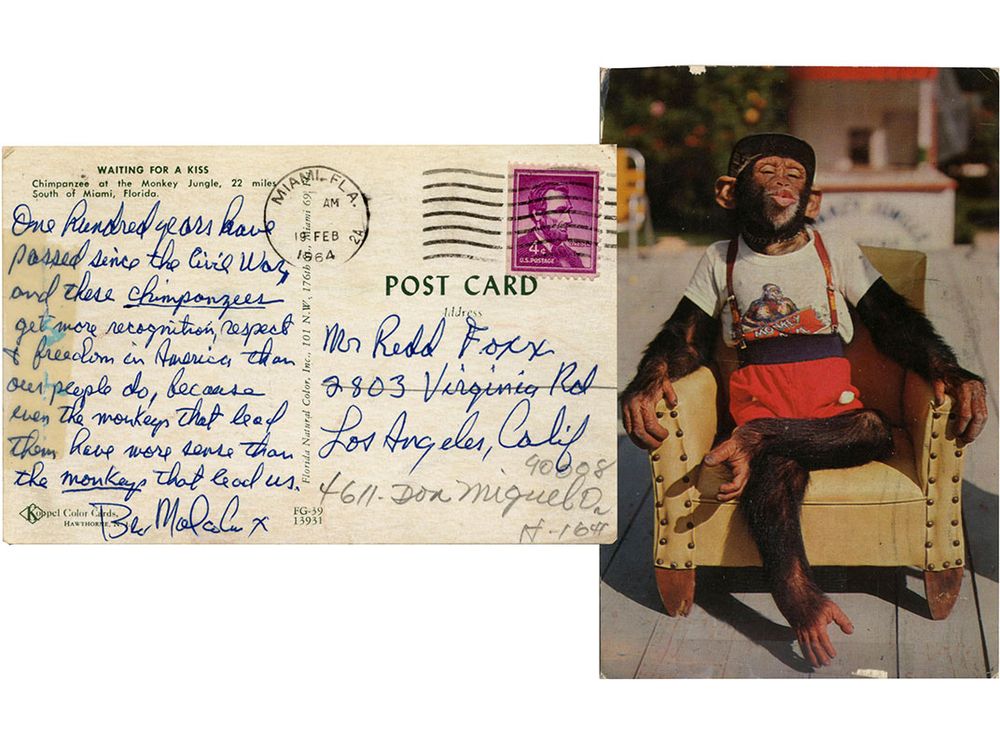 WAITING FOR A KISS
Chimpanzee at the Monkey Jungle, 22 miles
South of Miami, Florida.
One hundred years have
passed since the Civil War,
and these chimpanzees
get more recognition, respect
& freedom in America than
our people do, because
even the monkeys that lead
them have more sense than
the monkeys that lead us.
Bro Malcolm X
Koppel Color Cards,
HAWTHORNE, N.
FG-39
13931
Florida Natural Color, Inc., 101 N.W. 176th Miami 69,
MIAMI, FLA.
AM
19 FEB
1964
4¢
U.S. POSTAGE
POST CARD
Address
Mr Redd Foxx
2803 Virginia Rd
Los Angeles, Calif
90008
4611 Don Miguel Dr
MONKEY